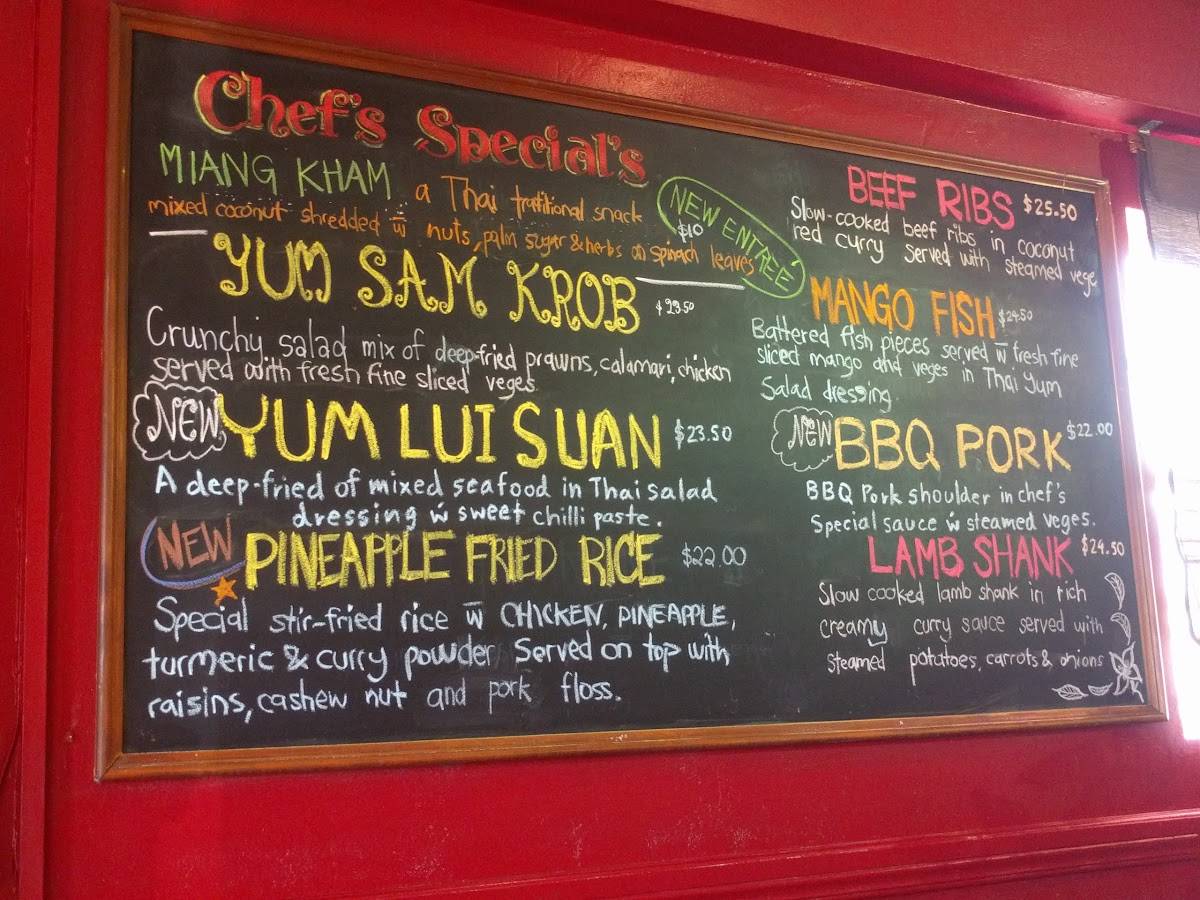 Chef's Special's
MIANG KHAM a Thai traditional snack $10
mixed coconut shredded w̄ nuts, palm sugar & herbs on spinach leaves
NEW ENTREÉ
YUM SAM KROB $23.50
Crunchy salad mix of deep-fried prawns, calamari, chicken
served with fresh fine sliced veges
NEW YUM LUI SUAN $23.50
A deep-fried of mixed seafood in Thai salad
dressing w̄ sweet chilli paste.
NEW PINEAPPLE FRIED RICE $22.00
Special stir-fried rice w̄ CHICKEN, PINEAPPLE,
turmeric & curry powder Served on top with
raisins, cashew nut and pork floss.
BEEF RIBS $25.50
Slow-cooked beef ribs in coconut
red curry served with steamed vege
MANGO FISH $24.50
Battered fish pieces served w̄ fresh fine
sliced mango and veges in Thai Yum
Salad dressing.
NEW BBQ PORK $22.00
BBQ Pork shoulder in chef's
Special sauce w̄ steamed veges.
LAMB SHANK $24.50
Slow cooked lamb shank in rich
creamy curry sauce served with
steamed potatoes, carrots & onions